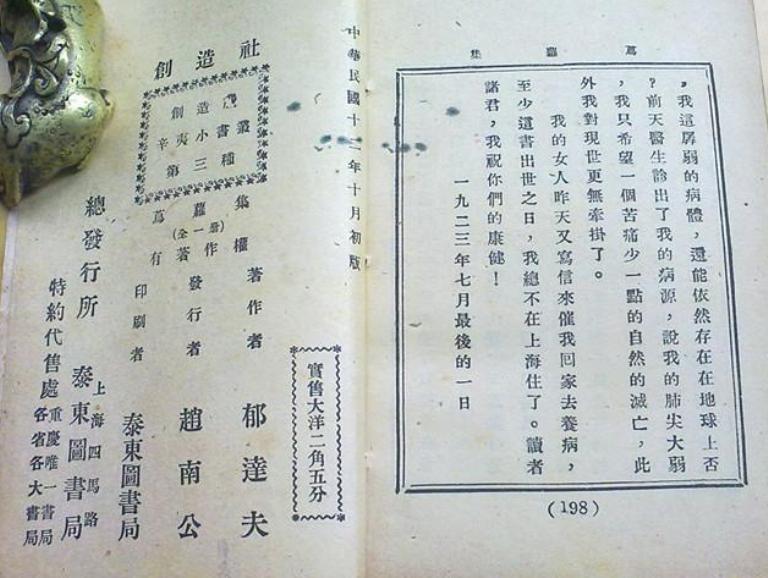 蔦蘿集
，我這孱弱的病體，還能依然存在在地球上否
？前天醫生診出了我的病源，說我的肺尖大弱
，我只希望一個苦痛少一點的自然的滅亡，此
外我對現世更無牽掛了。
我的女人昨天又寫信來催我回家去養病，
至少這書出世之日，我總不在上海住了。讀者
諸君，我祝你們的康健！
一九二三年七月最後的一日
(198)
中華民國十二年十月初版
實售大洋二角五分
創造社
辛夷小叢書
第三種
蔦蘿集
(全一冊)
有著作權
著作者 郁達夫
發行者 趙南公
印刷者 泰東圖書局
總發行所 上海四馬路 泰東圖書局
特約代售處 重慶唯一書局
各省各大書局